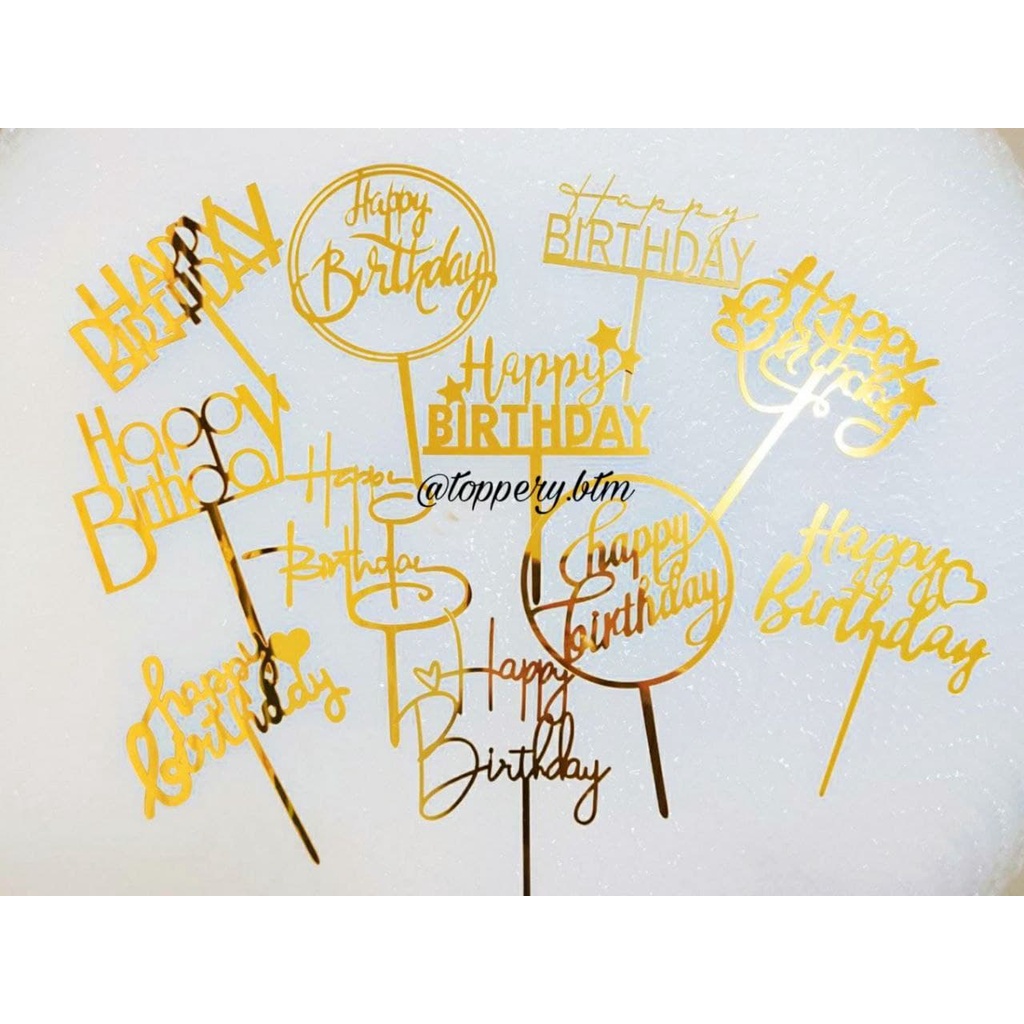 HAPPY
BIRTHDAY
Happy
Birthday
Happy
BIRTHDAY
Happy
Birthday
Happy
BIRTHDAY
Happy
Birthday
@toppery.btm
Happy
Birthday
happy
birthday
Happy
Birthday
happy
birthday
Happy
Birthday